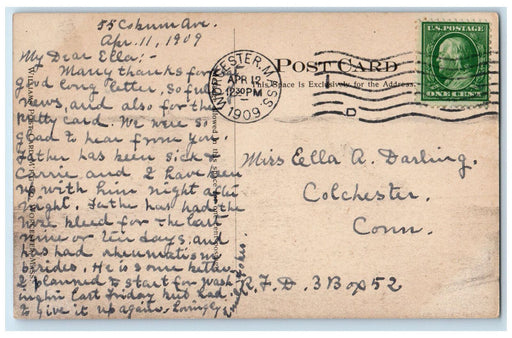 55 Coburn Ave.
Apr. 11, 1909
My Dear Ella:-
Many thanks for the
good long letter, so full of
news, and also for the
pretty card. We were so
glad to hear from you.
Father has been sick &
Carrie and I have been
up with him night after
night. Father has had the
nose bleed for the last
nine or ten days, and
has had rheumatism
besides. He is some better.
I planned to start for Wash-
ington last Friday but had
to give it up again. Lovingly
POST CARD
This Space is Exclusively for the Address.
WORCESTER, MASS.
APR 12
12:30 PM
1909
D
U.S. POSTAGE
ONE CENT
Miss Ella A. Darling.
Colchester,
Conn.
R.F.D. 3 Box 52